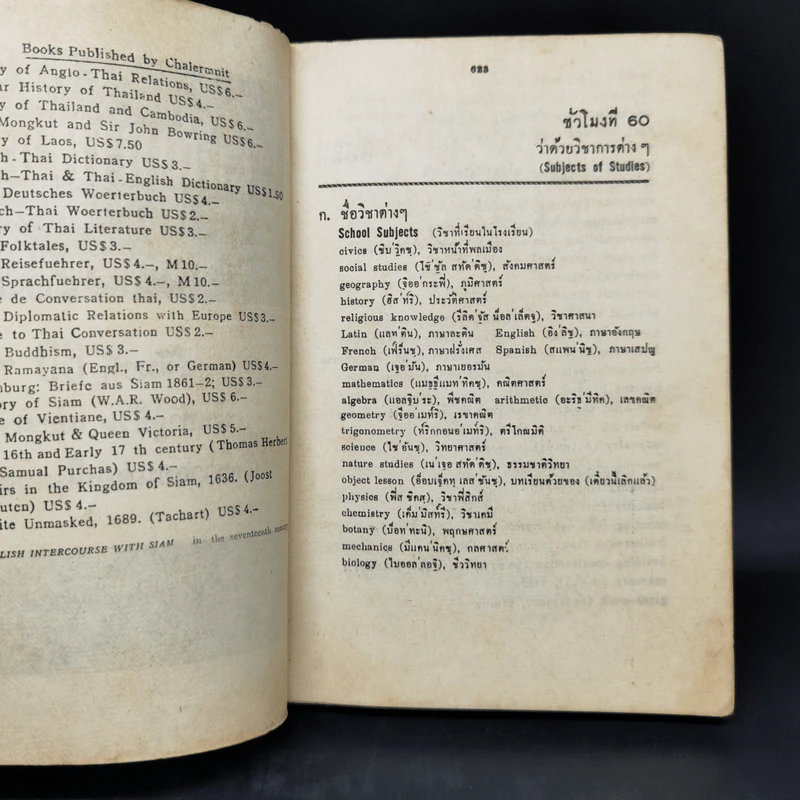 Books Published by Chalermnit
y of Anglo-Thai Relations, US$ 6.—
ar History of Thailand US$ 4.—
y of Thailand and Cambodia, US$ 6.—
Mongkut and Sir John Bowring US$ 6.—
ry of Laos, US$ 7.50
h-Thai Dictionary US$ 3.—
h—Thai & Thai-English Dictionary US$ 1.50
Deutsches Woerterbuch US$ 4.—
ch—Thai Woerterbuch US$ 2.—
ry of Thai Literature US$ 3.—
Folktales, US$ 3.—
Reisefuehrer, US$ 4.—, M 10.—
Sprachfuehrer, US$ 4.—, M 10.—
e de Conversation thai, US$ 2.—
Diplomatic Relations with Europe US$ 3.—
e to Thai Conversation US$ 2.—
Buddhism, US$ 3.—
Ramayana (Engl., Fr., or German) US$ 4.—
nburg: Briefe aus Siam 1861—2; US$ 3.—
ory of Siam (W.A.R. Wood), US$ 6.—
e of Vientiane, US$ 4.—
Mongkut & Queen Victoria, US$ 5.—
16th and Early 17 th century (Thomas Herbert
Samual Purchas) US$ 4.—
irs in the Kingdom of Siam, 1636. (Joost
outen) US$ 4.—
ite Unmasked, 1689. (Tachart) US$ 4.—
LISH INTERCOURSE WITH SIAM in the seventeenth century
623
ชั่วโมงที่ 60
ว่าด้วยวิชาการต่าง ๆ
(Subjects of Studies)
ก. ชื่อวิชาต่างๆ
School Subjects (วิชาที่เรียนในโรงเรียน)
civics (ซิบ'วิคซ), วิชาหน้าที่พลเมือง
social studies (โซ'ชัล สทัด'ดิซ), สังคมศาสตร์
geography (จิออ'กระฟี่), ภูมิศาสตร์
history (ฮิส'ทรี), ประวัติศาสตร์
religious knowledge (รีลิด'จัส น็อล'เล็ดจ), วิชาศาสนา
Latin (แลท'ติน), ภาษาละติน English (อิง'ลิช), ภาษาอังกฤษ
French (เฟร็นช), ภาษาฝรั่งเศส Spanish (สแพน'นิช), ภาษาสเปญ
German (เจอ'มัน), ภาษาเยอรมัน
mathematics (แมธธีแมท'ทิคซ), คณิตศาสตร์
algebra (แอลจิบ'ระ), พีชคณิต arithmetic (อะริธ'มีทิค), เลขคณิต
geometry (จีออ'เมทรี), เรขาคณิต
trigonometry (ทริกกอนอ'เมทรี), ตรีโกณมิติ
science (ไซ'อันซ), วิทยาศาสตร์
nature studies (เน'เจอ สทัด'ดิซ), ธรรมชาติวิทยา
object lesson (อ็อบเจ็คท เลส'ซัน), บทเรียนด้วยของ (เดี๋ยวนี้เลิกแล้ว)
physics (ฟิส'ซิคส), วิชาฟิสิกส์
chemistry (เค็ม'มิสทรี), วิชาเคมี
botany (บ็อท'ทะนี), พฤกษศาสตร์
mechanics (มีแคน'นิคซ), กลศาสตร์
biology (ไบออล'ลอจี), ชีววิทยา